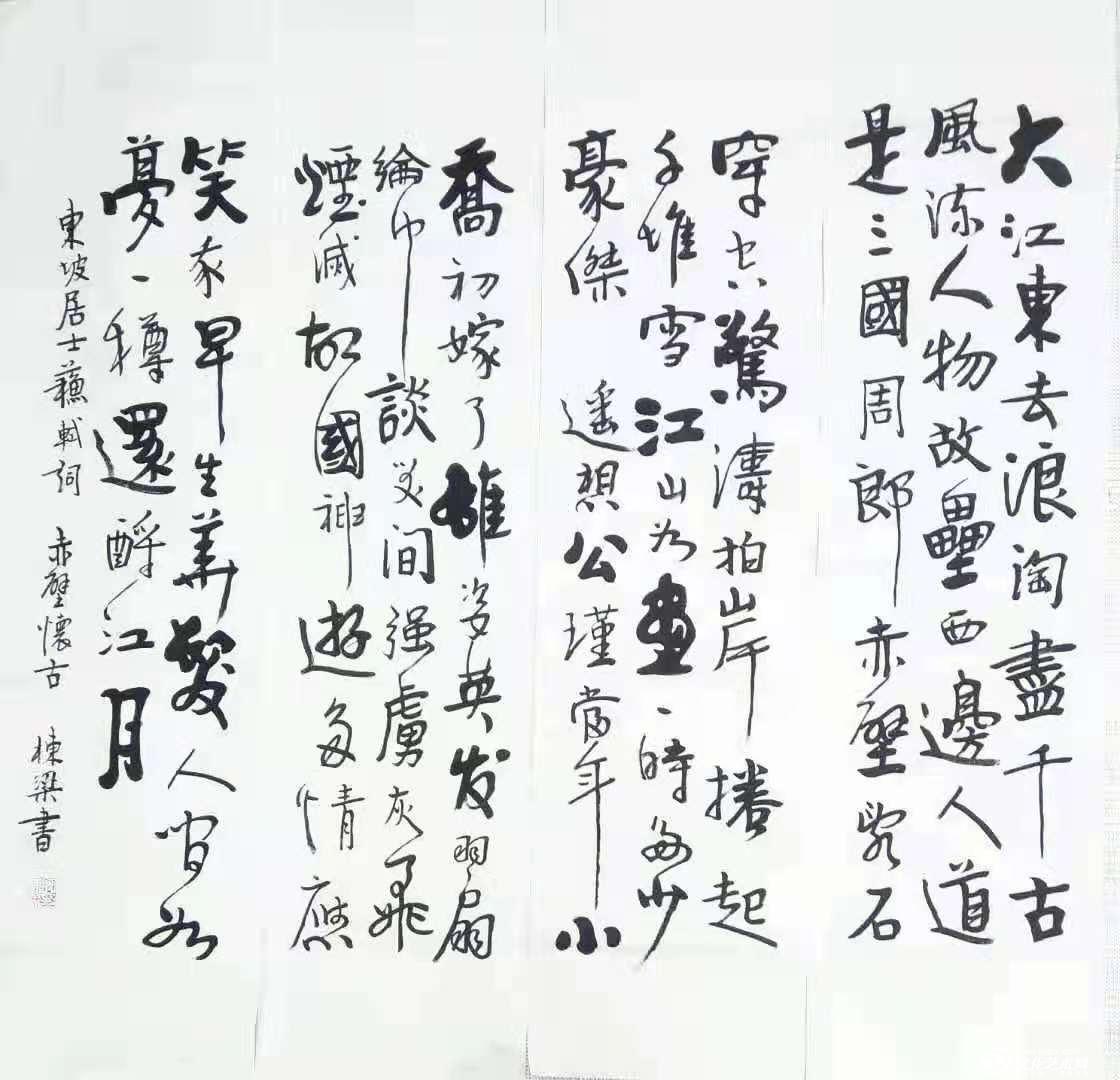 大江東去浪淘盡千古
風流人物故壘西邊人道
是三國周郎赤壁亂石
穿空驚濤拍岸捲起
千堆雪江山如畫一時多少
豪傑 遥想公瑾當年小
喬初嫁了雄姿英发羽扇
綸巾談笑间强虜灰飛
煙滅故國神遊多情應
笑我早生華髮人间如
夢一樽還酹江月
東坡居士蘇軾詞 赤壁懷古 棟梁書